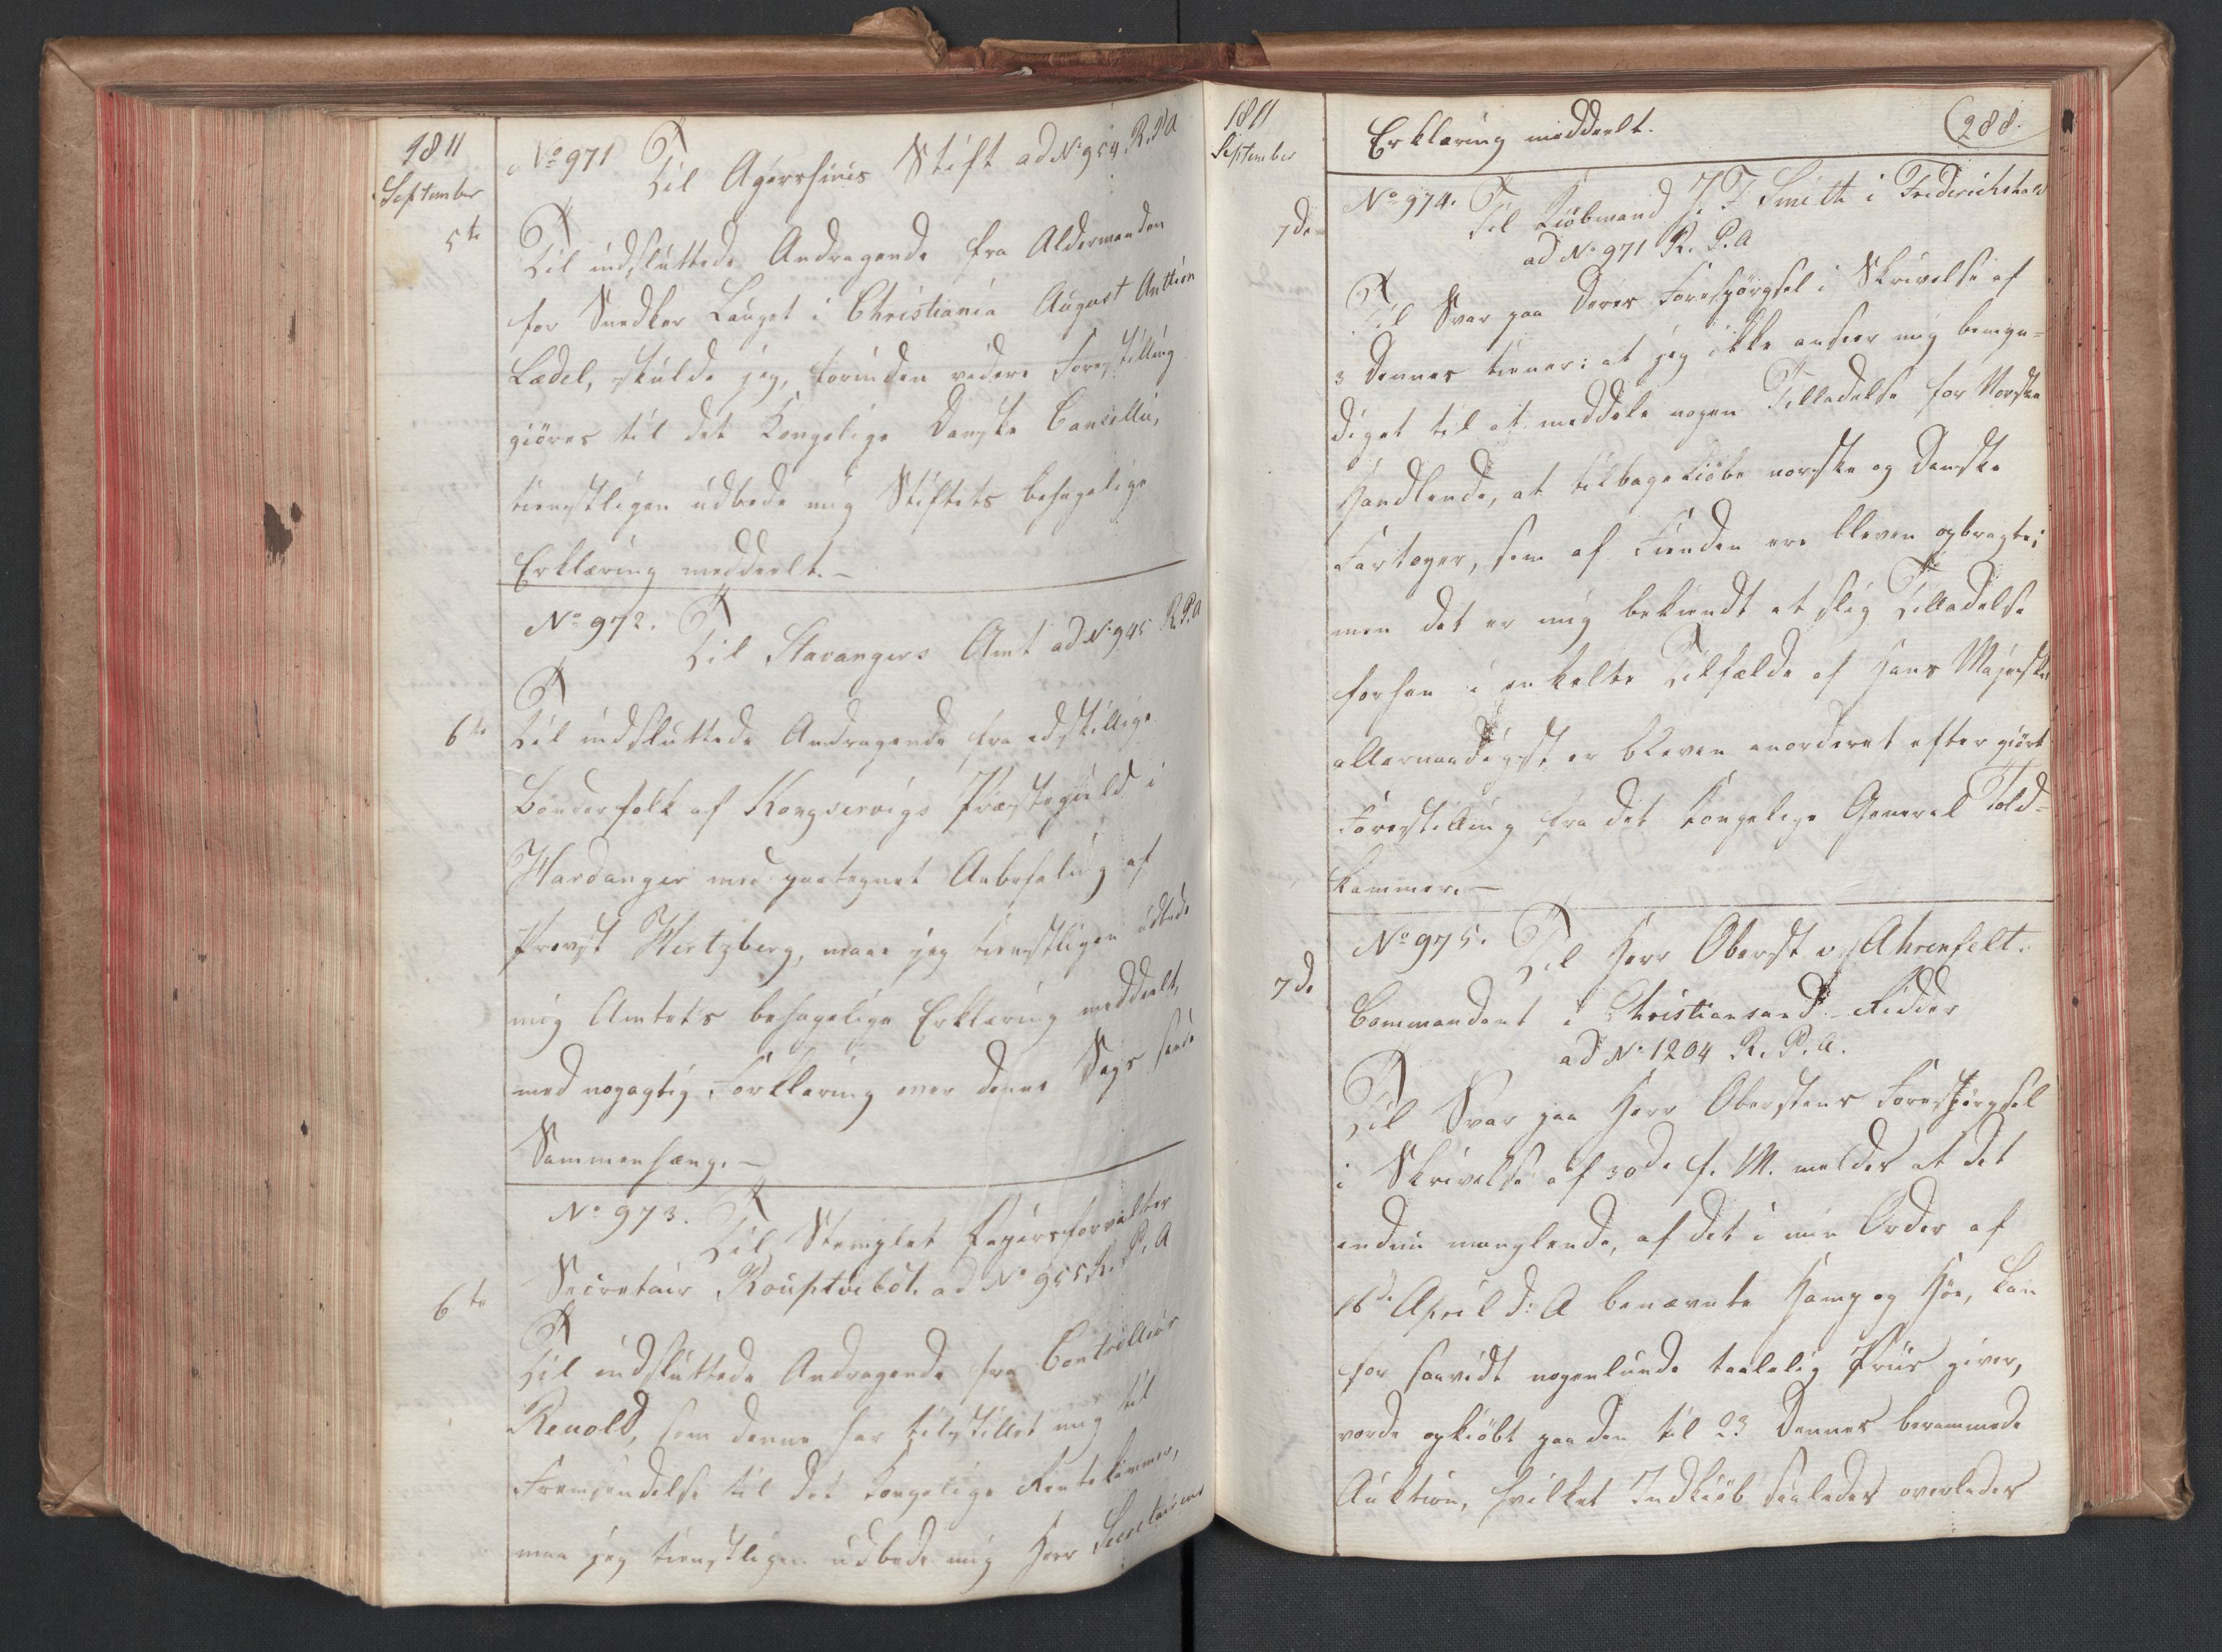 1811
September
5te
No 971 Til Agershuus Stift ad No 954 R. P. A
Til indsluttede Andragende fra Aldermanden
for Snedker Lauget i Christiania August Anthon
Ladel, skulde jeg, forinden videre Forestilling
giöres til det Kongelige Danske Cancellie,
tienstligen udbede mig Stiftets behagelige
Erklæring meddeelt. —
No 972. Til Stavangers Amt ad No 945 R. P. A
6te
Til indsluttede Andragende fra adskillige
Bönderfolk af Kongservigs Præstegield i
Hardanger med paategnet Anbefaling af
Provst Hertzberg, maae jeg tienstligen udbede
mig Amtets behagelige Erklæring meddeelt,
med nöyagtig Forklaring over denne Sags sande
Sammenhæng. —
No 973. Til Stemplet Papiirsforvalter
Secretair ad No 955 R. P. A
6te
Til indsluttede Andragende fra Controlleur
Renold, som denne har tilstillet mig til
Fremsendelse til det Kongelige Rentekammer,
maa jeg tienstligen udbede mig Herr Secretairens
1811
September
Erklæring meddeelt.
288.
No 974. Til Kiöbmand J. F. Smith i Friderichshald
ad No 971 R. P. A
7de
Til Svar paa Deres Forespörgsel i Skrivelse af
3 Dennes tiener: at jeg ikke anseer mig bemyn-
diget til at meddele nogen Tilladelse for Norske
Handlende, at tilbagekiöbe norske og Danske
Fartöyer, som af Fienden ere bleven opbragte;
men det er mig bekiendt at slig Tilladelse
forhen i enkelte Tilfælde af Hans Majestet
allernaadigst er bleven anorderet efter giort
Forestilling fra det Kongelige General Told-
kammer. —
No 975. Til Herr Oberst v. Ahrenfelt.
7de
Commandant i Christiansand. Ridder
ad No 1204 R. P. A.
Til Svar paa Herr Oberstens Forespörgsel
i Skrivelse af 30de f. M. meldes at det
endnu manglende, af det i min Ordre af
16de April d: A benævnte Hamp og Höe, kan
for saavidt nogenlunde taalelig Priis giver,
vorde opkiöbt paa den til 23 Dennes berammede
Auktion, hvilket Indkiöb saaledes overlades